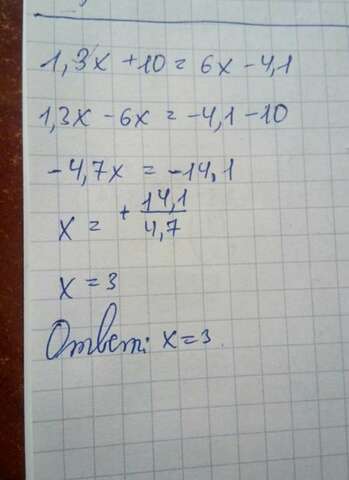 1,3x + 10 = 6x - 4,1
1,3x - 6x = -4,1 - 10
-4,7x = -14,1
x = + 14,1/4,7
x = 3
Ответ: x = 3